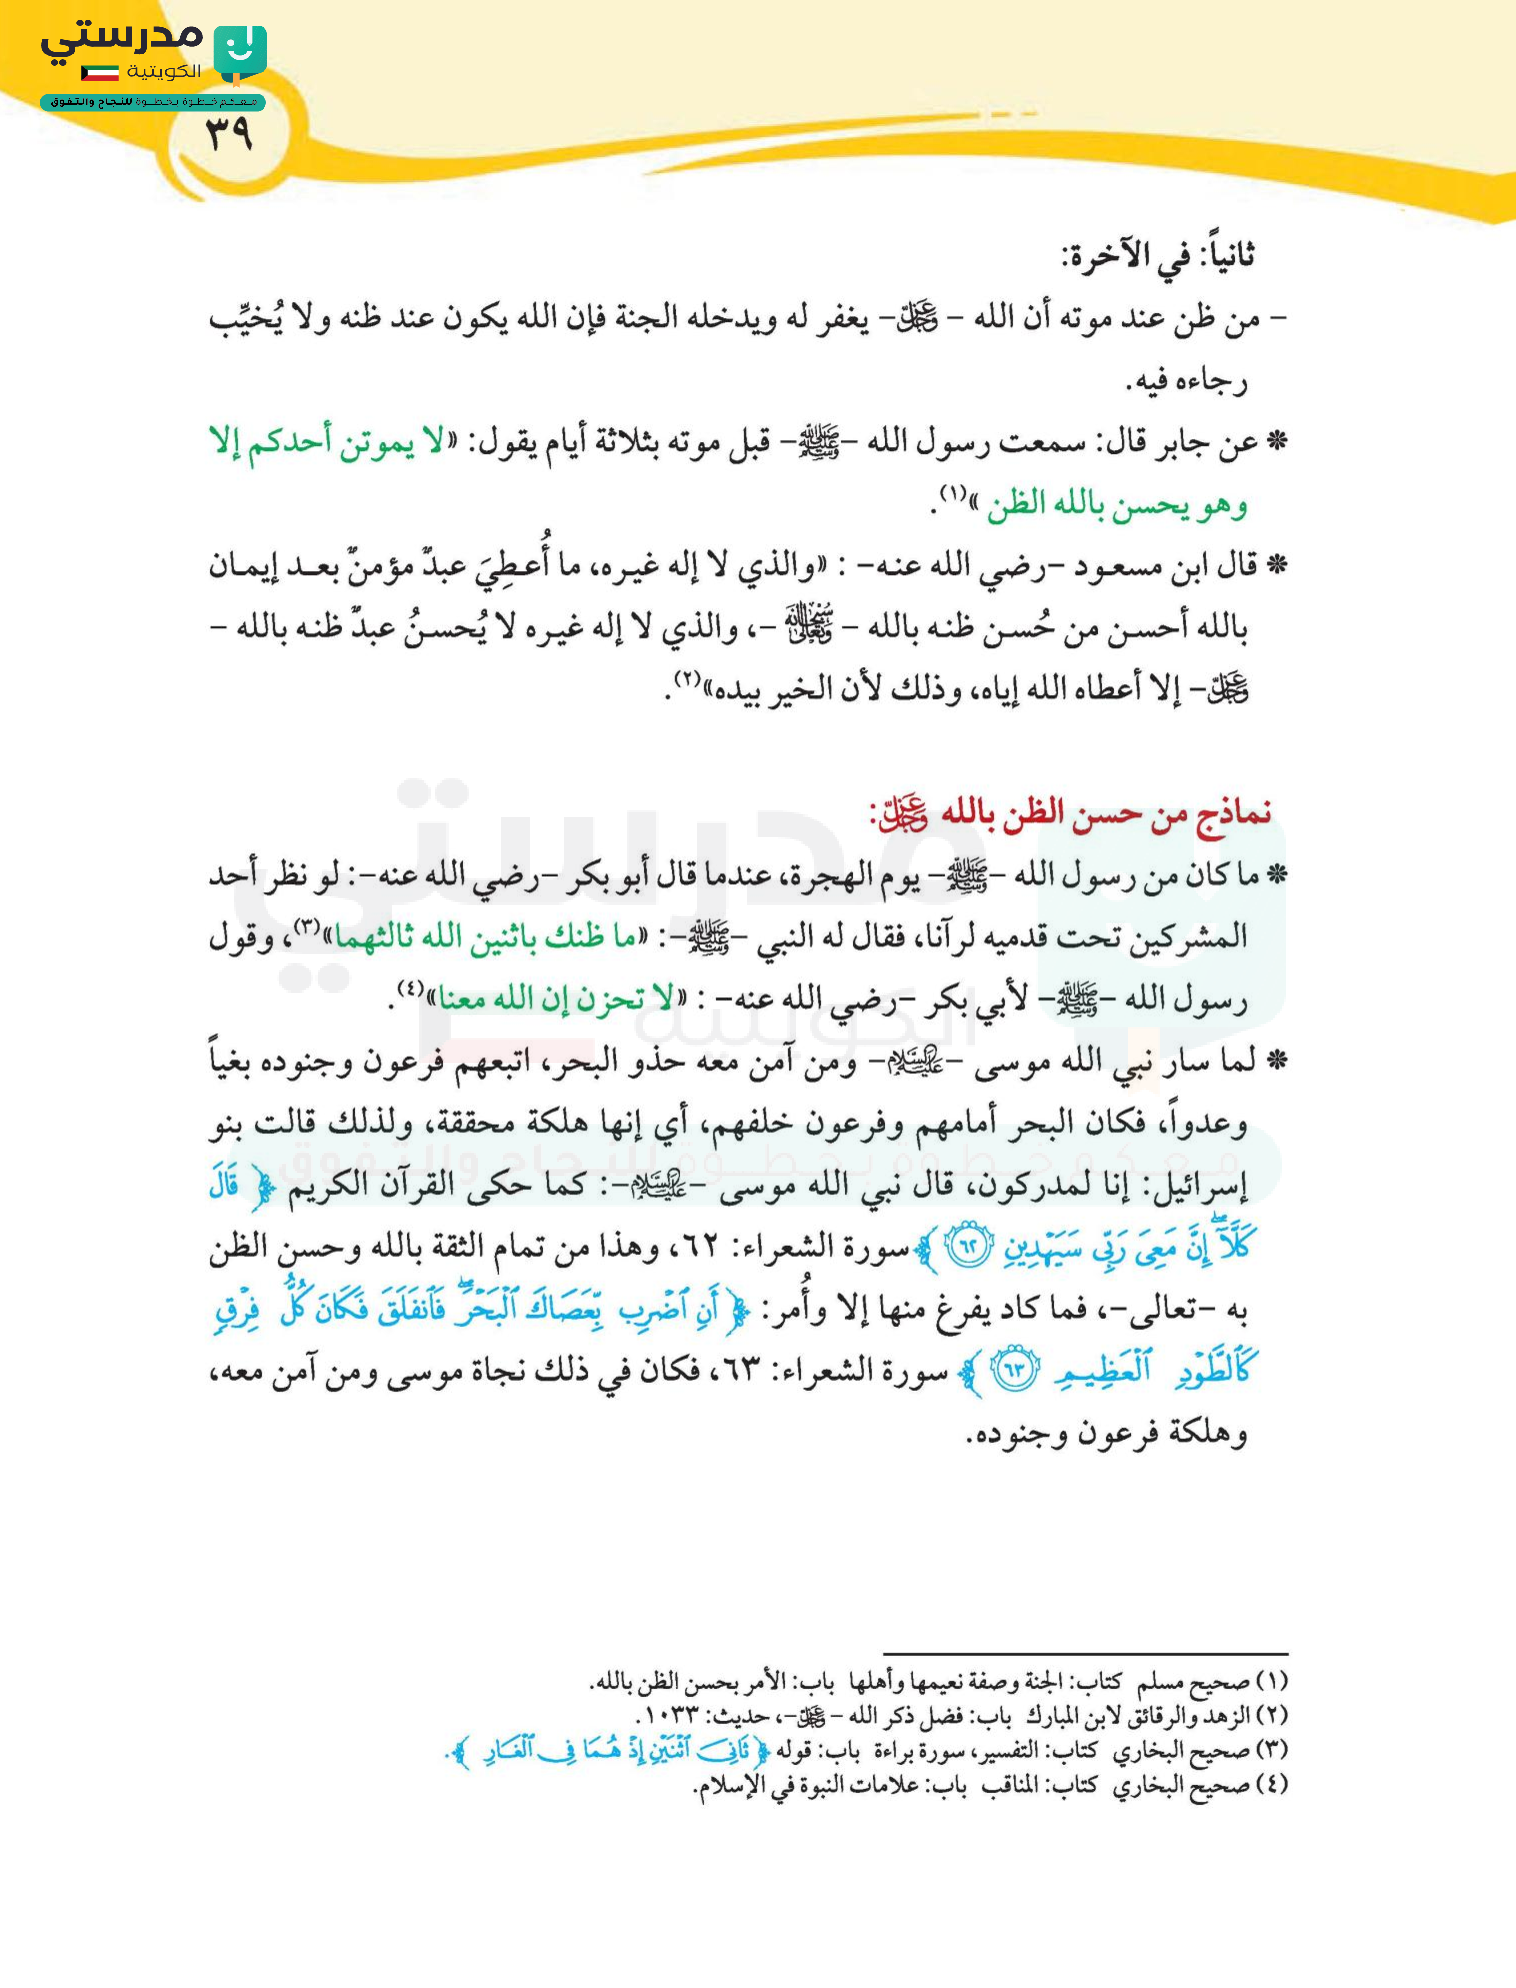 مدرستي
الكويتية
معكم خطوة بخطوة للنجاح والتفوق
٣٩
ثانياً: في الآخرة:
– من ظن عند موته أن الله – عزّ وجلّ– يغفر له ويدخله الجنة فإن الله يكون عند ظنه ولا يُخيِّب
رجاءه فيه.
* عن جابر قال: سمعت رسول الله –ﷺ– قبل موته بثلاثة أيام يقول: «لا يموتن أحدكم إلا
وهو يحسن بالله الظن »(١).
* قال ابن مسعود –رضي الله عنه– : «والذي لا إله غيره، ما أُعطِيَ عبدٌ مؤمنٌ بعد إيمان
بالله أحسن من حُسن ظنه بالله – سبحانه وتعالى –، والذي لا إله غيره لا يُحسنُ عبدٌ ظنه بالله –
عزّ وجلّ– إلا أعطاه الله إياه، وذلك لأن الخير بيده»(٢).
نماذج من حسن الظن بالله عزّ وجلّ:
* ما كان من رسول الله –ﷺ– يوم الهجرة، عندما قال أبو بكر –رضي الله عنه–: لو نظر أحد
المشركين تحت قدميه لرآنا، فقال له النبي –ﷺ–: «ما ظنك باثنين الله ثالثهما»(٣)، وقول
رسول الله –ﷺ– لأبي بكر –رضي الله عنه– : «لا تحزن إن الله معنا»(٤).
* لما سار نبي الله موسى –عليه السلام– ومن آمن معه حذو البحر، اتبعهم فرعون وجنوده بغياً
وعدواً، فكان البحر أمامهم وفرعون خلفهم، أي إنها هلكة محققة، ولذلك قالت بنو
إسرائيل: إنا لمدركون، قال نبي الله موسى –عليه السلام–: كما حكى القرآن الكريم ﴿ قَالَ
كَلَّآۖ إِنَّ مَعِىَ رَبِّى سَيَهْدِينِ ٦٢ ﴾ سورة الشعراء: ٦٢، وهذا من تمام الثقة بالله وحسن الظن
به –تعالى–، فما كاد يفرغ منها إلا وأُمر: ﴿ أَنِ ٱضْرِب بِّعَصَاكَ ٱلْبَحْرَۖ فَٱنفَلَقَ فَكَانَ كُلُّ فِرْقٍ
كَٱلطَّوْدِ ٱلْعَظِيمِ ٦٣ ﴾ سورة الشعراء: ٦٣، فكان في ذلك نجاة موسى ومن آمن معه،
وهلكة فرعون وجنوده.
(١) صحيح مسلم كتاب: الجنة وصفة نعيمها وأهلها باب: الأمر بحسن الظن بالله.
(٢) الزهد والرقائق لابن المبارك باب: فضل ذكر الله – عزّ وجلّ–، حديث: ١٠٣٣.
(٣) صحيح البخاري كتاب: التفسير، سورة براءة باب: قوله ﴿ ثَانِىَ ٱثْنَيْنِ إِذْ هُمَا فِى ٱلْغَارِ ﴾.
(٤) صحيح البخاري كتاب: المناقب باب: علامات النبوة في الإسلام.